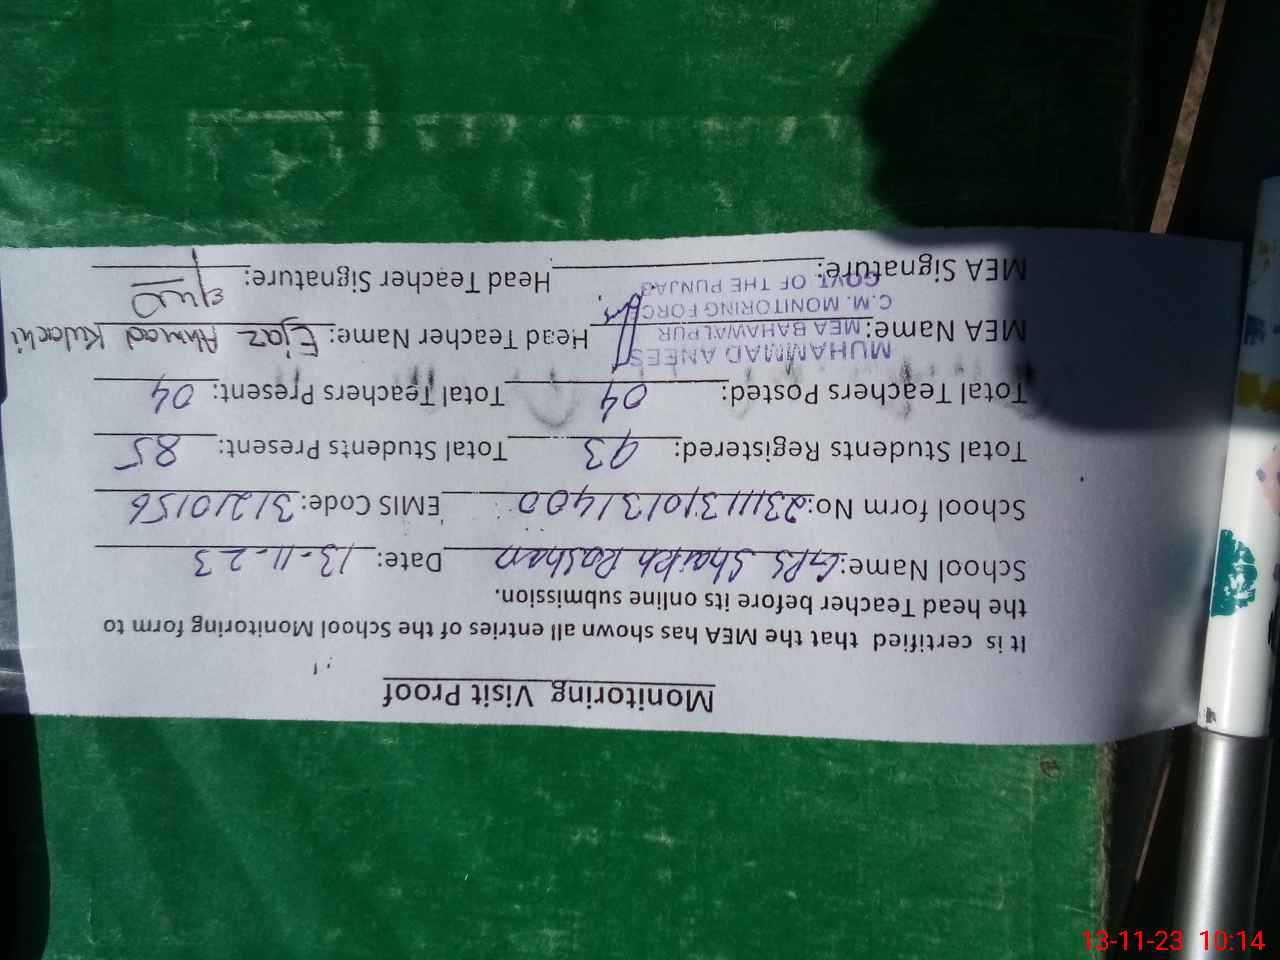 Monitoring Visit Proof
It is certified that the MEA has shown all entries of the School Monitoring form to
the head Teacher before its online submission.
School Name: GPS Shaikh Roshan Date: 13-11-23
School form No: 23111310131400 EMIS Code: 31210156
Total Students Registered: 93 Total Students Present: 85
Total Teachers Posted: 04 Total Teachers Present: 04
MUHAMMAD ANEES
MEA Name: MEA BAHAWALPUR Head Teacher Name: Ejaz Ahmad Kulachi
C.M. MONITORING FORCE
GOVT. OF THE PUNJAB
MEA Signature: Head Teacher Signature:
13-11-23 10:14